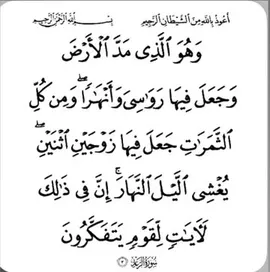 أعوذ بالله من الشيطان الرجيم بسم الله الرحمن الرحيم
وَهُوَ ٱلَّذِى مَدَّ ٱلْأَرْضَ
وَجَعَلَ فِيهَا رَوَٰسِىَ وَأَنْهَٰرًا ۖ وَمِن كُلِّ
ٱلثَّمَرَٰتِ جَعَلَ فِيهَا زَوْجَيْنِ ٱثْنَيْنِ ۖ
يُغْشِى ٱلَّيْلَ ٱلنَّهَارَ ۚ إِنَّ فِى ذَٰلِكَ
لَءَايَٰتٍ لِّقَوْمٍ يَتَفَكَّرُونَ
سورة الرعد ٣